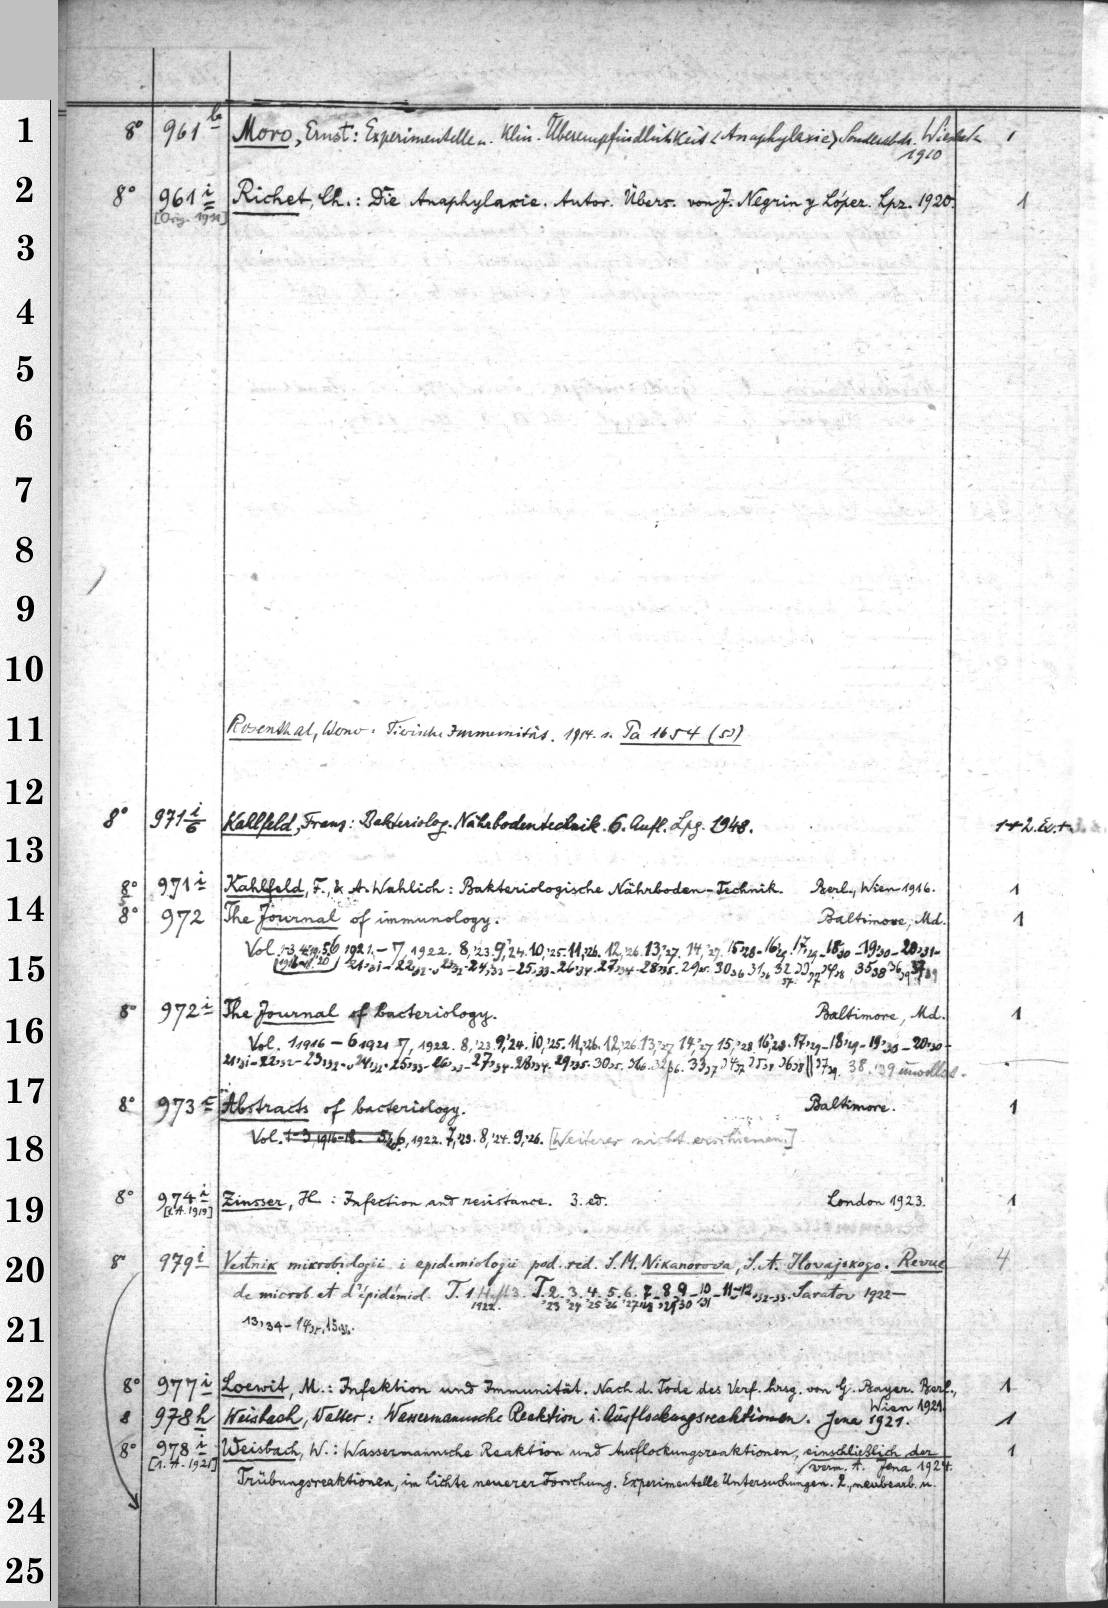 1
8° 961 h Moro, Ernst: Experimentelle u. klin. Überempfindlichkeit (Anaphylaxie) Sonderabdr. Wiesb. 1
1910
2
8° 961 i Richet, Ch.: Die Anaphylaxie. Autor. Übers. von J. Negrin y López. Lpz. 1920. 1
[Orig. 1911]
3
4
5
6
7
8
9
10
11
Rosenthal, Werner: Tierische Immunität. 1914. s. Pa 1654 (50)
12
8° 971 i/6 Kallfeld, Franz: Bakteriolog. Nährbodentechnik. 6. Aufl. Lpg. 1948. 1+2. Ex.
13
8° 971 i Kahlfeld, F., & A. Wahlich: Bakteriologische Nährboden-Technik. Berl., Wien 1916. 1
14
8° 972 The Journal of immunology. Baltimore, Md. 1
Vol. 1-3 5.6 1921.- 7, 1922. 8,'23. 9,'24. 10,'25. 11,'26. 12,'26. 13,'27. 14,'27. 15,'28- 16,'29. 17,'29- 18,'30 -19,'30- 20,'31-
15
21,'31- 22,'32- 23,'32- 24,'33- 25,'33- 26,'34. 27,'34- 28,'35. 29,'35. 30,'36 31,'36 32,'37 33,'37 34,'38 35,'38 36,'39 37,'39
8° 972 i The Journal of bacteriology. Baltimore, Md. 1
16
Vol. 1 1916 - 6 1921 7, 1922. 8,'23. 9,'24. 10,'25. 11,'26. 12,'26. 13,'27 14,'27 15,'28. 16,'28. 17,'29- 18,'29- 19,'30- 20,'30-
21,'31- 22,'32- 23,'32- 24,'32- 25,'33- 26,'33- 27,'34- 28,'34. 29,'35. 30,'35. 31,'36. 32,'36. 33,'37 34,'37 35,'38 36,'38 37,'39. 38.'39 unvollst.
17
8° 973 Abstracts of bacteriology. Baltimore. 1
18
Vol. 1-3, 1916-18. 5, 6, 1922. 7,'23. 8,'24. 9,'25. [Weiterer nicht erschienen.]
19
8° 974 i Zinsser, H.: Infection and resistance. 3. ed. London 1923. 1
[1. A. 1919]
20
8° 979 i Vestnik mikrobiologii i epidemiologii pod. red. S. M. Nikanorova, S. A. Ilovajskogo. Revue 4
de microb. et d'épidémiol. T. 1 Heft 3. T. 2. 3. 4. 5. 6. 7-8-9-10-11-12, '32-33. Saratov 1922-
1922. '23 '24 '25 '26 '27 '28 '29 '30 '31
21
13,'34- 14,'35, 15,'36.
22
8° 977 i Loewit, M.: Infektion und Immunität. Nach d. Tode des Verf. hrsg. von G. Bayer. Berl., 1
Wien 1921.
8 978 h Weisbach, Walter: Wassermannsche Reaktion i. Ausflockungsreaktionen. Jena 1921. 1
23
8° 978 i Weisbach, W.: Wassermannsche Reaktion und Ausflockungsreaktionen, einschließlich der 1
[1. A. 1921] verm. A. Jena 1924.
Trübungsreaktionen, im Lichte neuerer Forschung. Experimentelle Untersuchungen. 2., neubearb. u.
24
25